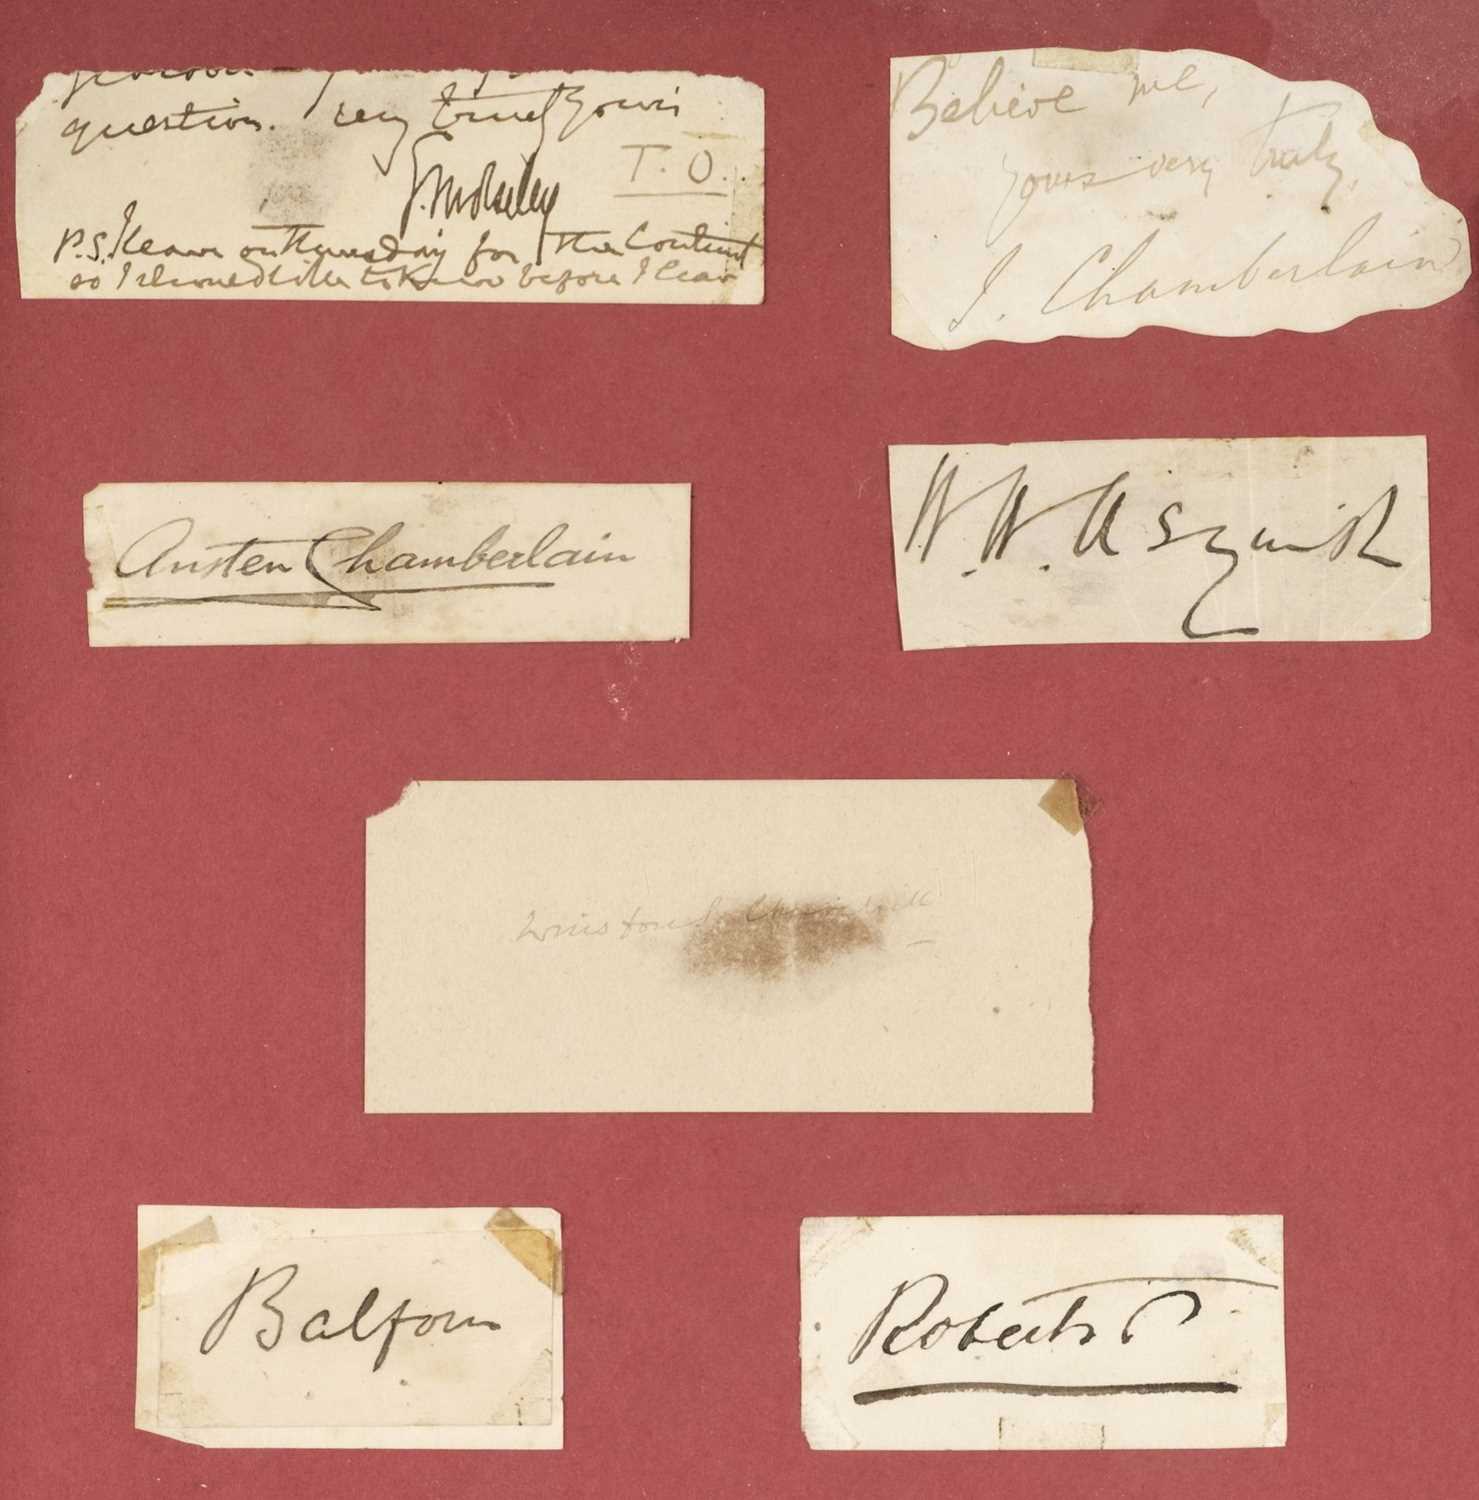 question. Very truly Yours
T. O.
P.S. I leave on Thursday for the Continent
so I should like to know before I leave
Believe me,
yours very truly,
J. Chamberlain
Austen Chamberlain
H. H. Asquith
Winston S. Churchill
Balfour
Roberts